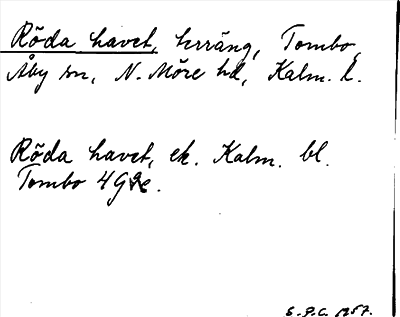 Röda havet, hrräng, Tombo,
Åby sn, N. Möre hd, Kalm. l.
Röda havet, ek. Kalm. bl.
Tombo 4G9e.
S.P.C. 1957.